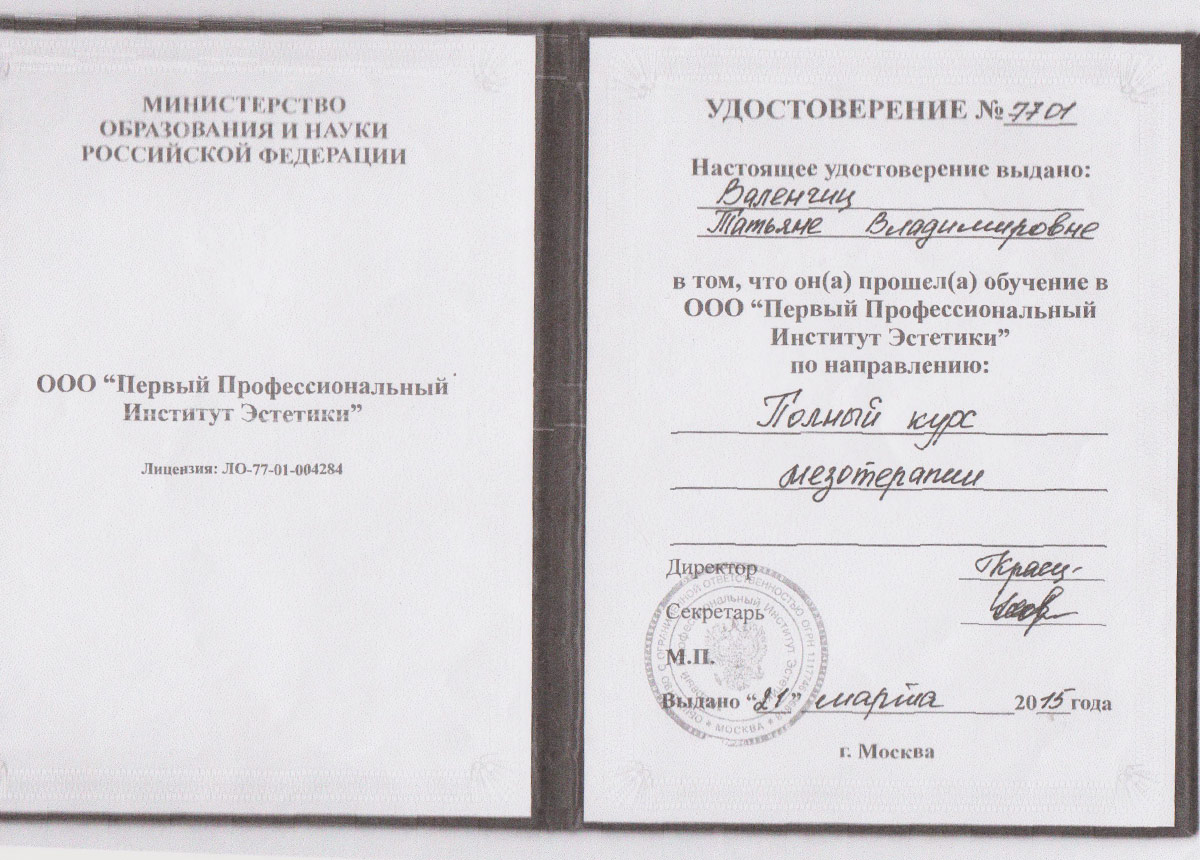 МИНИСТЕРСТВО
ОБРАЗОВАНИЯ И НАУКИ
РОССИЙСКОЙ ФЕДЕРАЦИИ
ООО “Первый Профессиональный
Институт Эстетики”
Лицензия: ЛО-77-01-004284
УДОСТОВЕРЕНИЕ № 7701
Настоящее удостоверение выдано:
Валенчиц
Татьяне Владимировне
в том, что он(а) прошел(а) обучение в
ООО “Первый Профессиональный
Институт Эстетики”
по направлению:
Полный курс
мезотерапии
Директор
Секретарь
М.П.
Выдано “21” марта 2015 года
г. Москва
ОГРАНИЧЕННОЙ ОТВЕТСТВЕННОСТЬЮ ОГРН 1117746
МОСКВА
Профессиональный Институт Эстетики